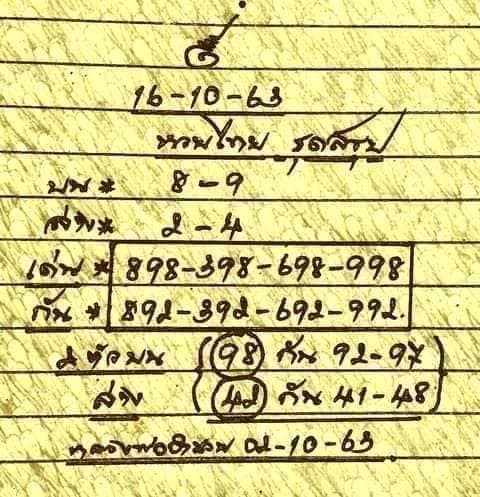 16-10-63
หวยไทย ชุดสรุป
บน* 8-9
ล่าง* 2-4
เด่น* 898-398-698-998
กัน* 892-392-692-992.
2 ตัวบน (98) กัน 92-97
ล่าง (42) กัน 41-48
02-10-63